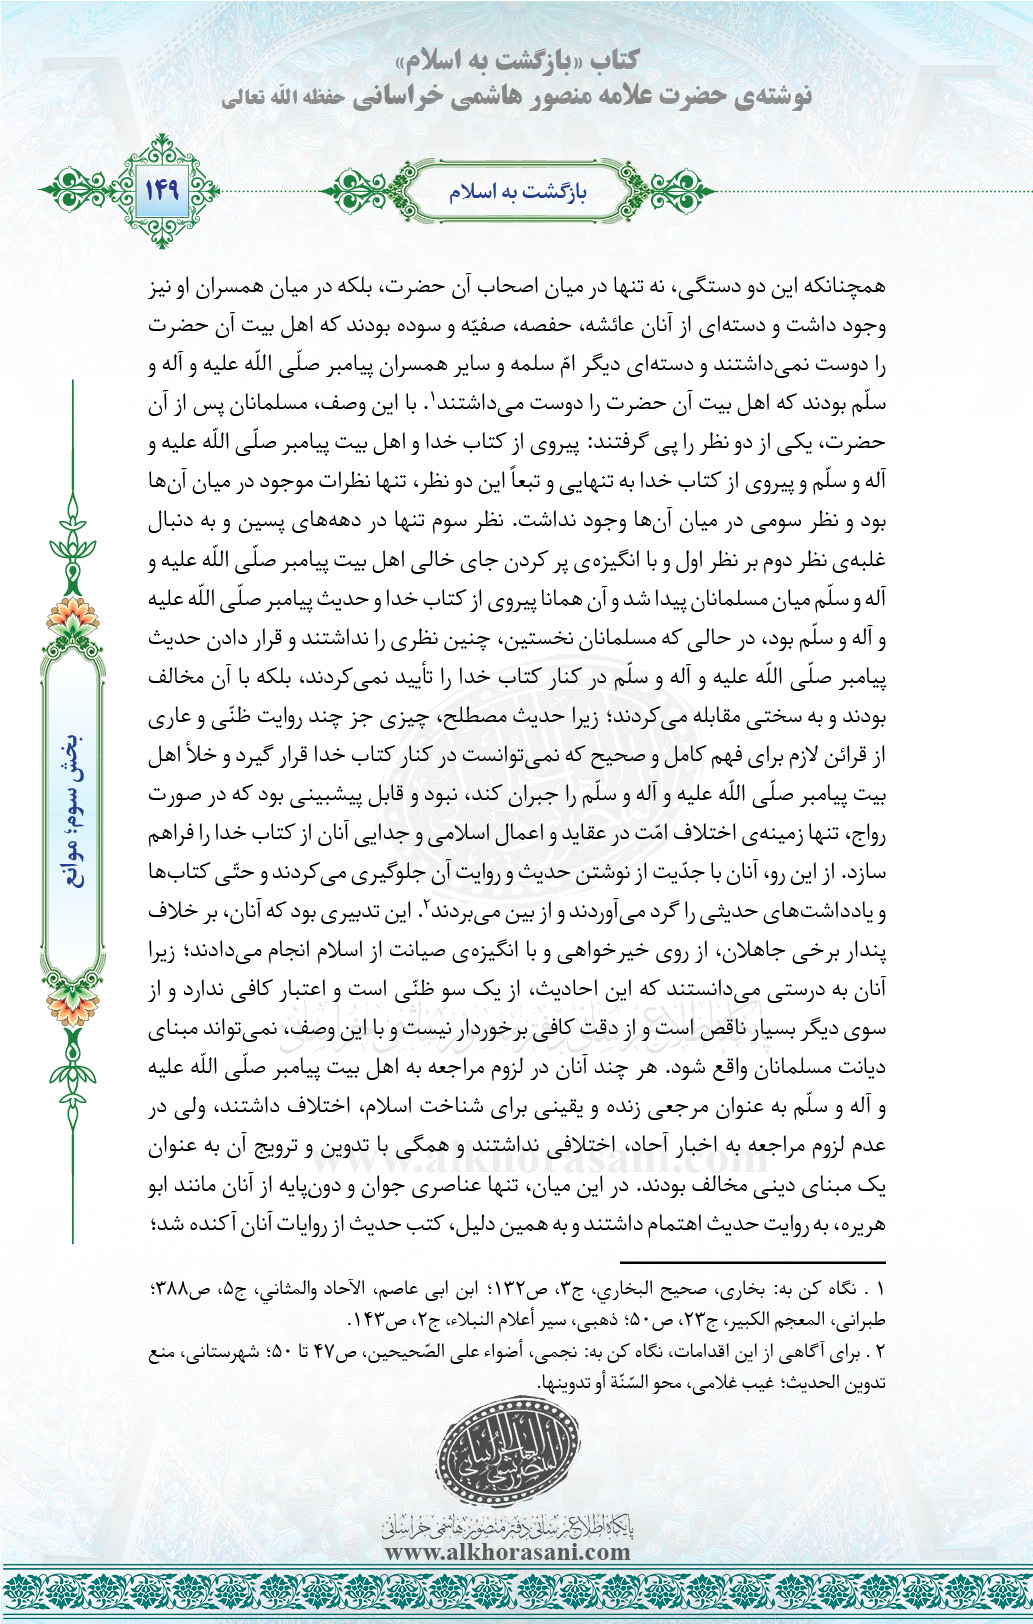 کتاب «بازگشت به اسلام»
نوشته‌ی حضرت علامه منصور هاشمی خراسانی حفظه الله تعالی
۱۴۹
بازگشت به اسلام
همچنانکه این دو دستگی، نه تنها در میان اصحاب آن حضرت، بلکه در میان همسران او نیز
وجود داشت و دسته‌ای از آنان عائشه، حفصه، صفیّه و سوده بودند که اهل بیت آن حضرت
را دوست نمی‌داشتند و دسته‌ای دیگر امّ سلمه و سایر همسران پیامبر صلّی اللّه علیه و آله و
سلّم بودند که اهل بیت آن حضرت را دوست می‌داشتند۱. با این وصف، مسلمانان پس از آن
حضرت، یکی از دو نظر را پی گرفتند: پیروی از کتاب خدا و اهل بیت پیامبر صلّی اللّه علیه و
آله و سلّم و پیروی از کتاب خدا به تنهایی و تبعاً این دو نظر، تنها نظرات موجود در میان آن‌ها
بود و نظر سومی در میان آن‌ها وجود نداشت. نظر سوم تنها در دهه‌های پسین و به دنبال
غلبه‌ی نظر دوم بر نظر اول و با انگیزه‌ی پر کردن جای خالی اهل بیت پیامبر صلّی اللّه علیه و
آله و سلّم میان مسلمانان پیدا شد و آن همانا پیروی از کتاب خدا و حدیث پیامبر صلّی اللّه علیه
و آله و سلّم بود، در حالی که مسلمانان نخستین، چنین نظری را نداشتند و قرار دادن حدیث
پیامبر صلّی اللّه علیه و آله و سلّم در کنار کتاب خدا را تأیید نمی‌کردند، بلکه با آن مخالف
بودند و به سختی مقابله می‌کردند؛ زیرا حدیث مصطلح، چیزی جز چند روایت ظنّی و عاری
از قرائن لازم برای فهم کامل و صحیح که نمی‌توانست در کنار کتاب خدا قرار گیرد و خلأ اهل
بیت پیامبر صلّی اللّه علیه و آله و سلّم را جبران کند، نبود و قابل پیشبینی بود که در صورت
رواج، تنها زمینه‌ی اختلاف امّت در عقاید و اعمال اسلامی و جدایی آنان از کتاب خدا را فراهم
سازد. از این رو، آنان با جدّیت از نوشتن حدیث و روایت آن جلوگیری می‌کردند و حتّی کتاب‌ها
و یادداشت‌های حدیثی را گرد می‌آوردند و از بین می‌بردند۲. این تدبیری بود که آنان، بر خلاف
پندار برخی جاهلان، از روی خیرخواهی و با انگیزه‌ی صیانت از اسلام انجام می‌دادند؛ زیرا
آنان به درستی می‌دانستند که این احادیث، از یک سو ظنّی است و اعتبار کافی ندارد و از
سوی دیگر بسیار ناقص است و از دقت کافی برخوردار نیست و با این وصف، نمی‌تواند مبنای
دیانت مسلمانان واقع شود. هر چند آنان در لزوم مراجعه به اهل بیت پیامبر صلّی اللّه علیه
و آله و سلّم به عنوان مرجعی زنده و یقینی برای شناخت اسلام، اختلاف داشتند، ولی در
عدم لزوم مراجعه به اخبار آحاد، اختلافی نداشتند و همگی با تدوین و ترویج آن به عنوان
یک مبنای دینی مخالف بودند. در این میان، تنها عناصری جوان و دون‌پایه از آنان مانند ابو
هریره، به روایت حدیث اهتمام داشتند و به همین دلیل، کتب حدیث از روایات آنان آکنده شد؛
بخش سوم؛ موانع
پایگاه اطلاع‌رسانی دفتر منصور هاشمی خراسانی
www.alkhorasani.com
۱ . نگاه کن به: بخاری، صحیح البخاري، ج۳، ص۱۳۲؛ ابن ابی عاصم، الآحاد والمثاني، ج۵، ص۳۸۸؛
طبرانی، المعجم الکبیر، ج۲۳، ص۵۰؛ ذهبی، سیر أعلام النبلاء، ج۲، ص۱۴۳.
۲ . برای آگاهی از این اقدامات، نگاه کن به: نجمی، أضواء علی الصّحیحین، ص۴۷ تا ۵۰؛ شهرستانی، منع
تدوین الحدیث؛ غیب غلامی، محو السّنّة أو تدوینها.
پایگاه اطلاع‌رسانی دفتر منصور هاشمی خراسانی
www.alkhorasani.com